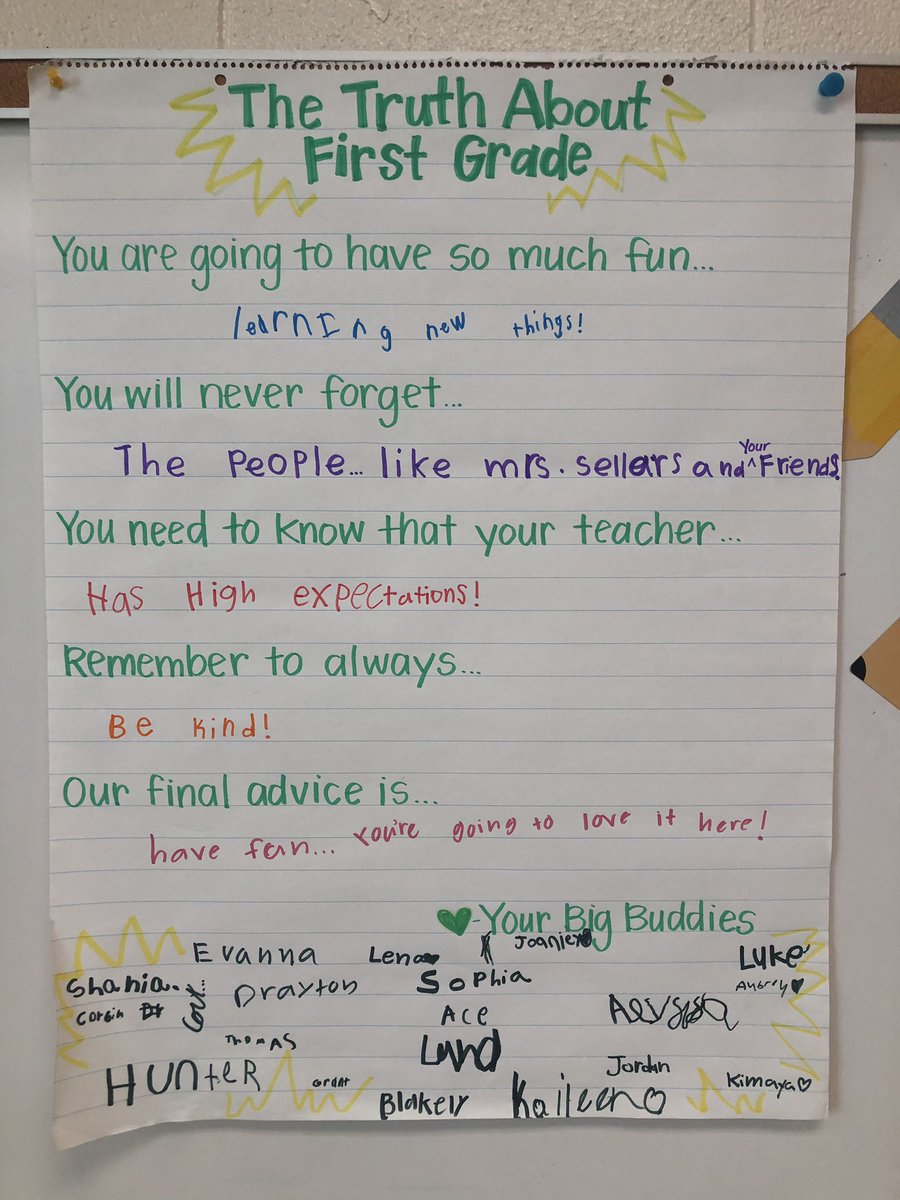 The Truth About
First Grade
You are going to have so much fun...
learning new things!
You will never forget...
The People... like mrs. sellars and ^Your Friends.
You need to know that your teacher...
Has High expectations!
Remember to always...
Be kind!
Our final advice is...
have fun... You're going to love it here!
-Your Big Buddies
Evanna Lena Luke
Shania. Drayton Sophia
Corbin Ace
Thomas Land
Hunter Grant Jordan Kimaya
Blakely Kaileen